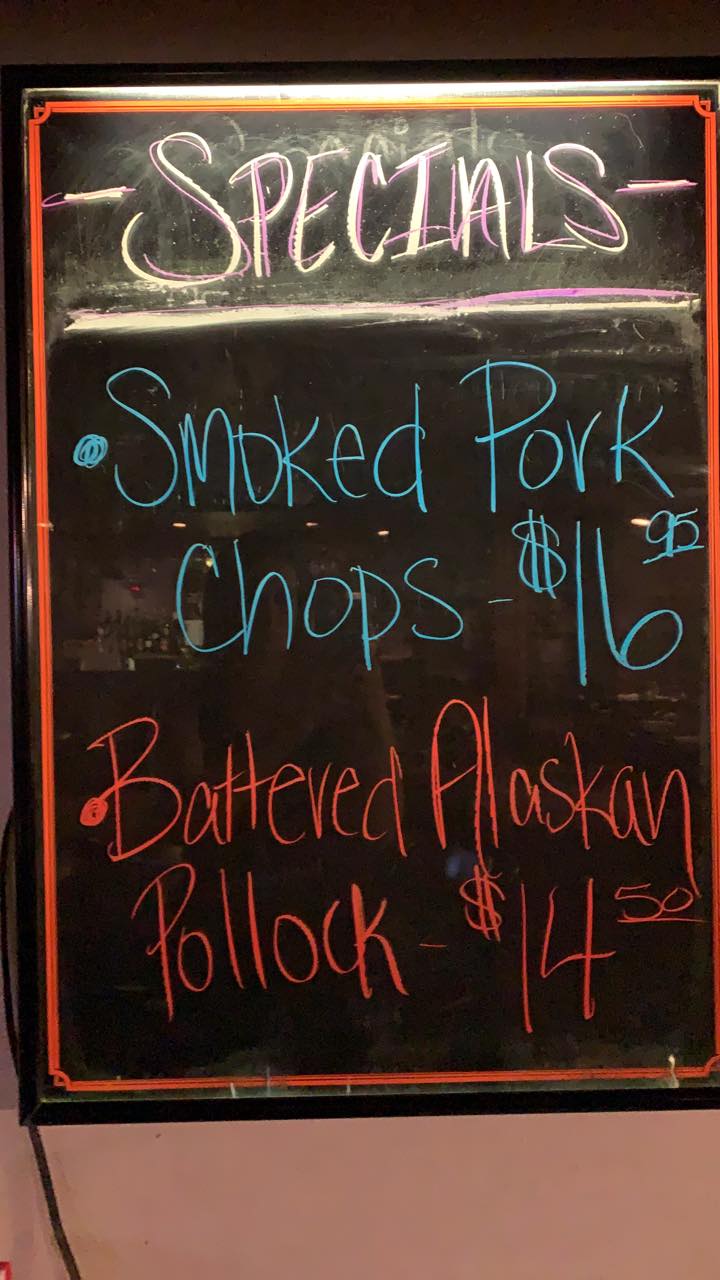 - SPECIALS -
• Smoked Pork
Chops - $16 95
• Battered Alaskan
Pollock - $14 50